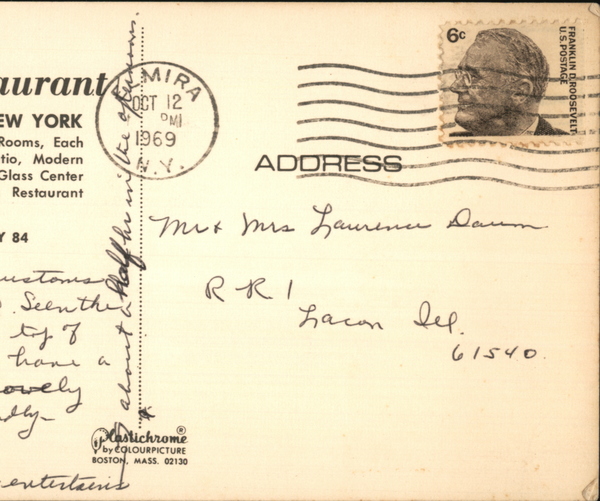 aurant
EW YORK
Rooms, Each
tio, Modern
Glass Center
Restaurant
Y 84
customs
Seen the
top of
have a
lovely
entertains
about a half hr in the afternoon.
Plastichrome®
by COLOURPICTURE
BOSTON, MASS. 02130
ELMIRA
OCT 12
PM
1969
N.Y.
6c
FRANKLIN D. ROOSEVELT
U.S. POSTAGE
ADDRESS
Mr & Mrs Laurence Daum
R R 1
Lacon Ill.
61540.